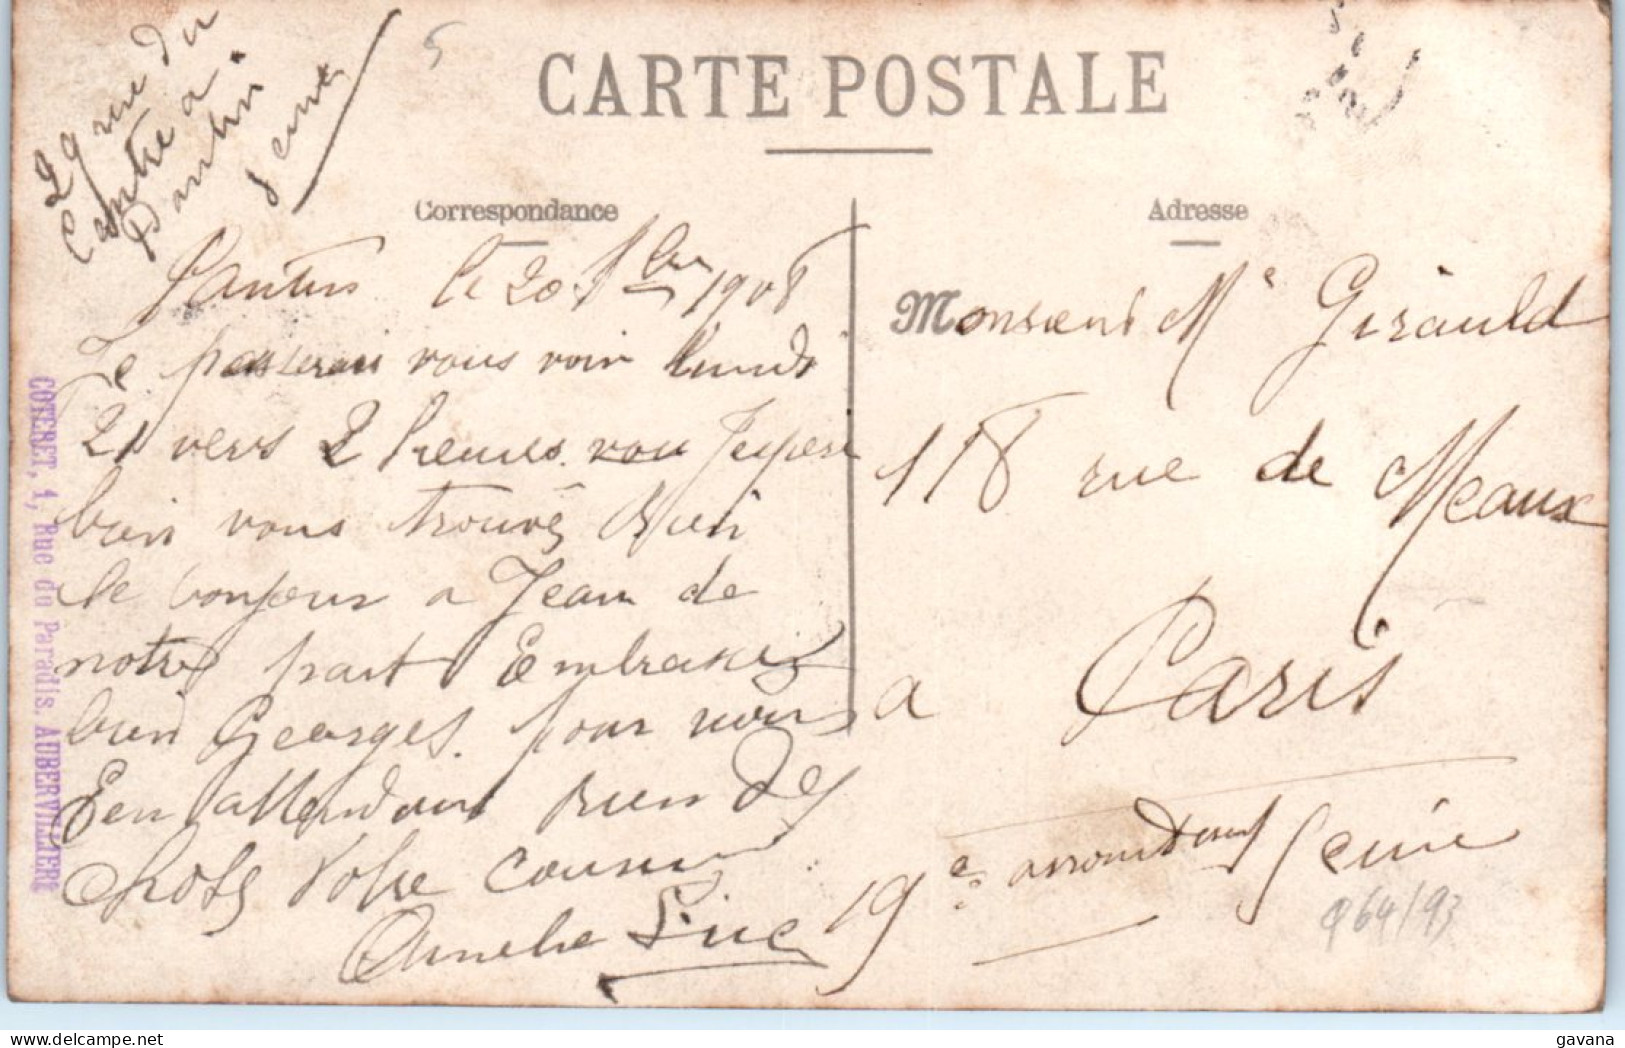 29 rue du
Centre a
Pantin
Seine
CARTE POSTALE
Correspondance
Adresse
Pantin le 20 7bre 1908
Je passerai vous voir lundi
21 vers 2 heures vou Jesper
bien vous trouvés Bien
le bonjour a Jean de
notre part Embrassez
bien Georges pour nous
En attendant bien des
choses Votre cousine
Amelie
Monsieur Me Girauld
118 rue de Meaux
a Paris
19e arrondment Seine
964/93
COTERET, 4, Rue do Paradis. AUBERVILLIERS
gavana